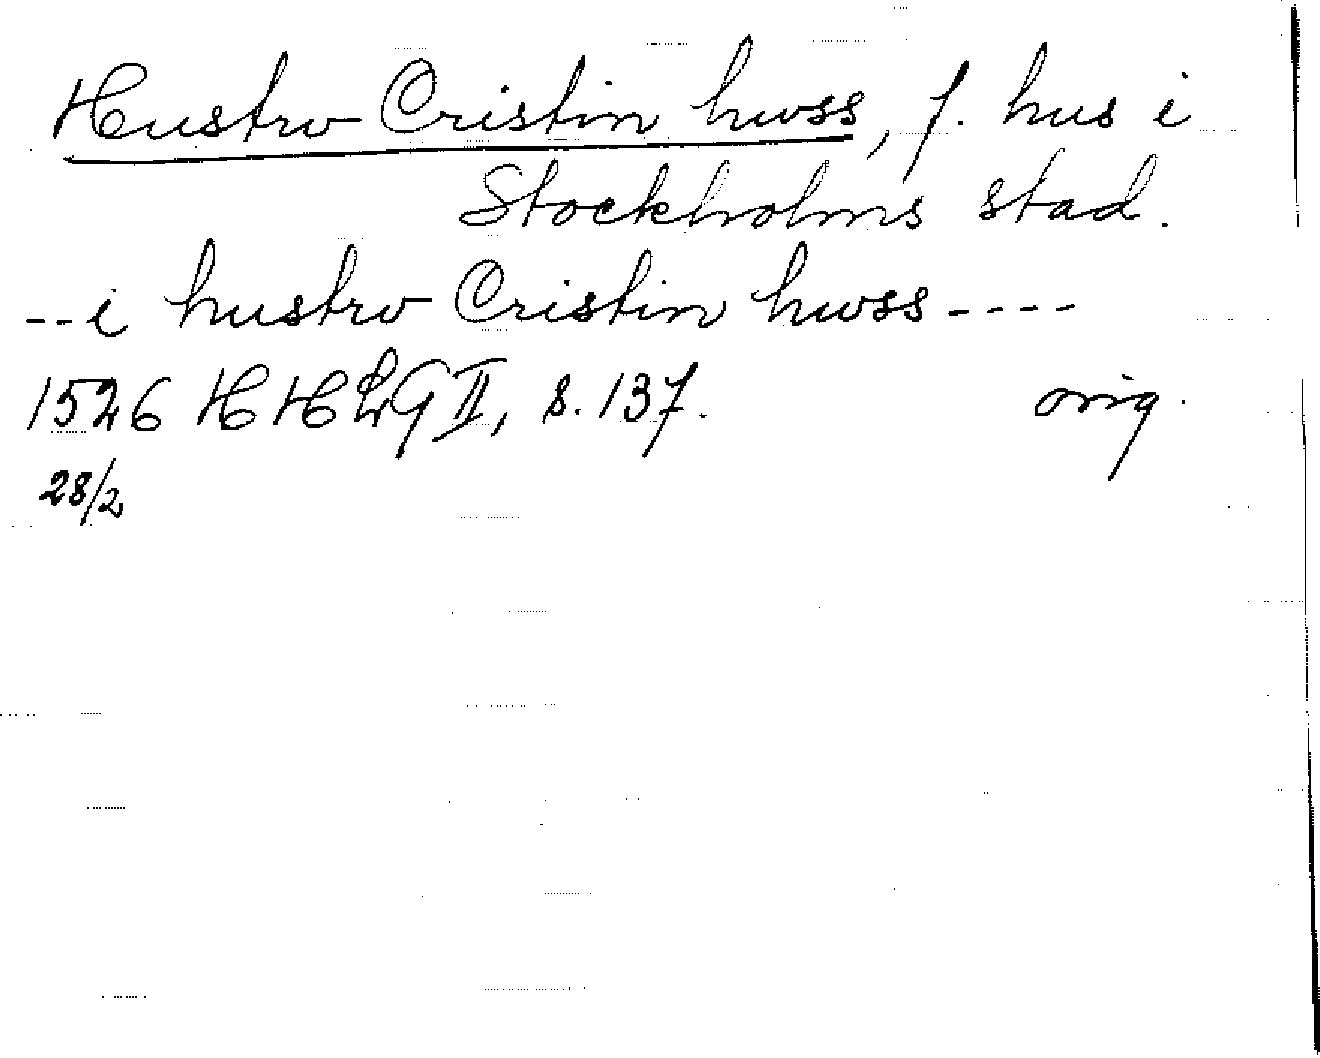 Hustrv Cristin hwss, f. hus i
Stockholms stad.
--i hustrv Cristin hwss----
1526 HHLG II, s. 137. orig.
28/2